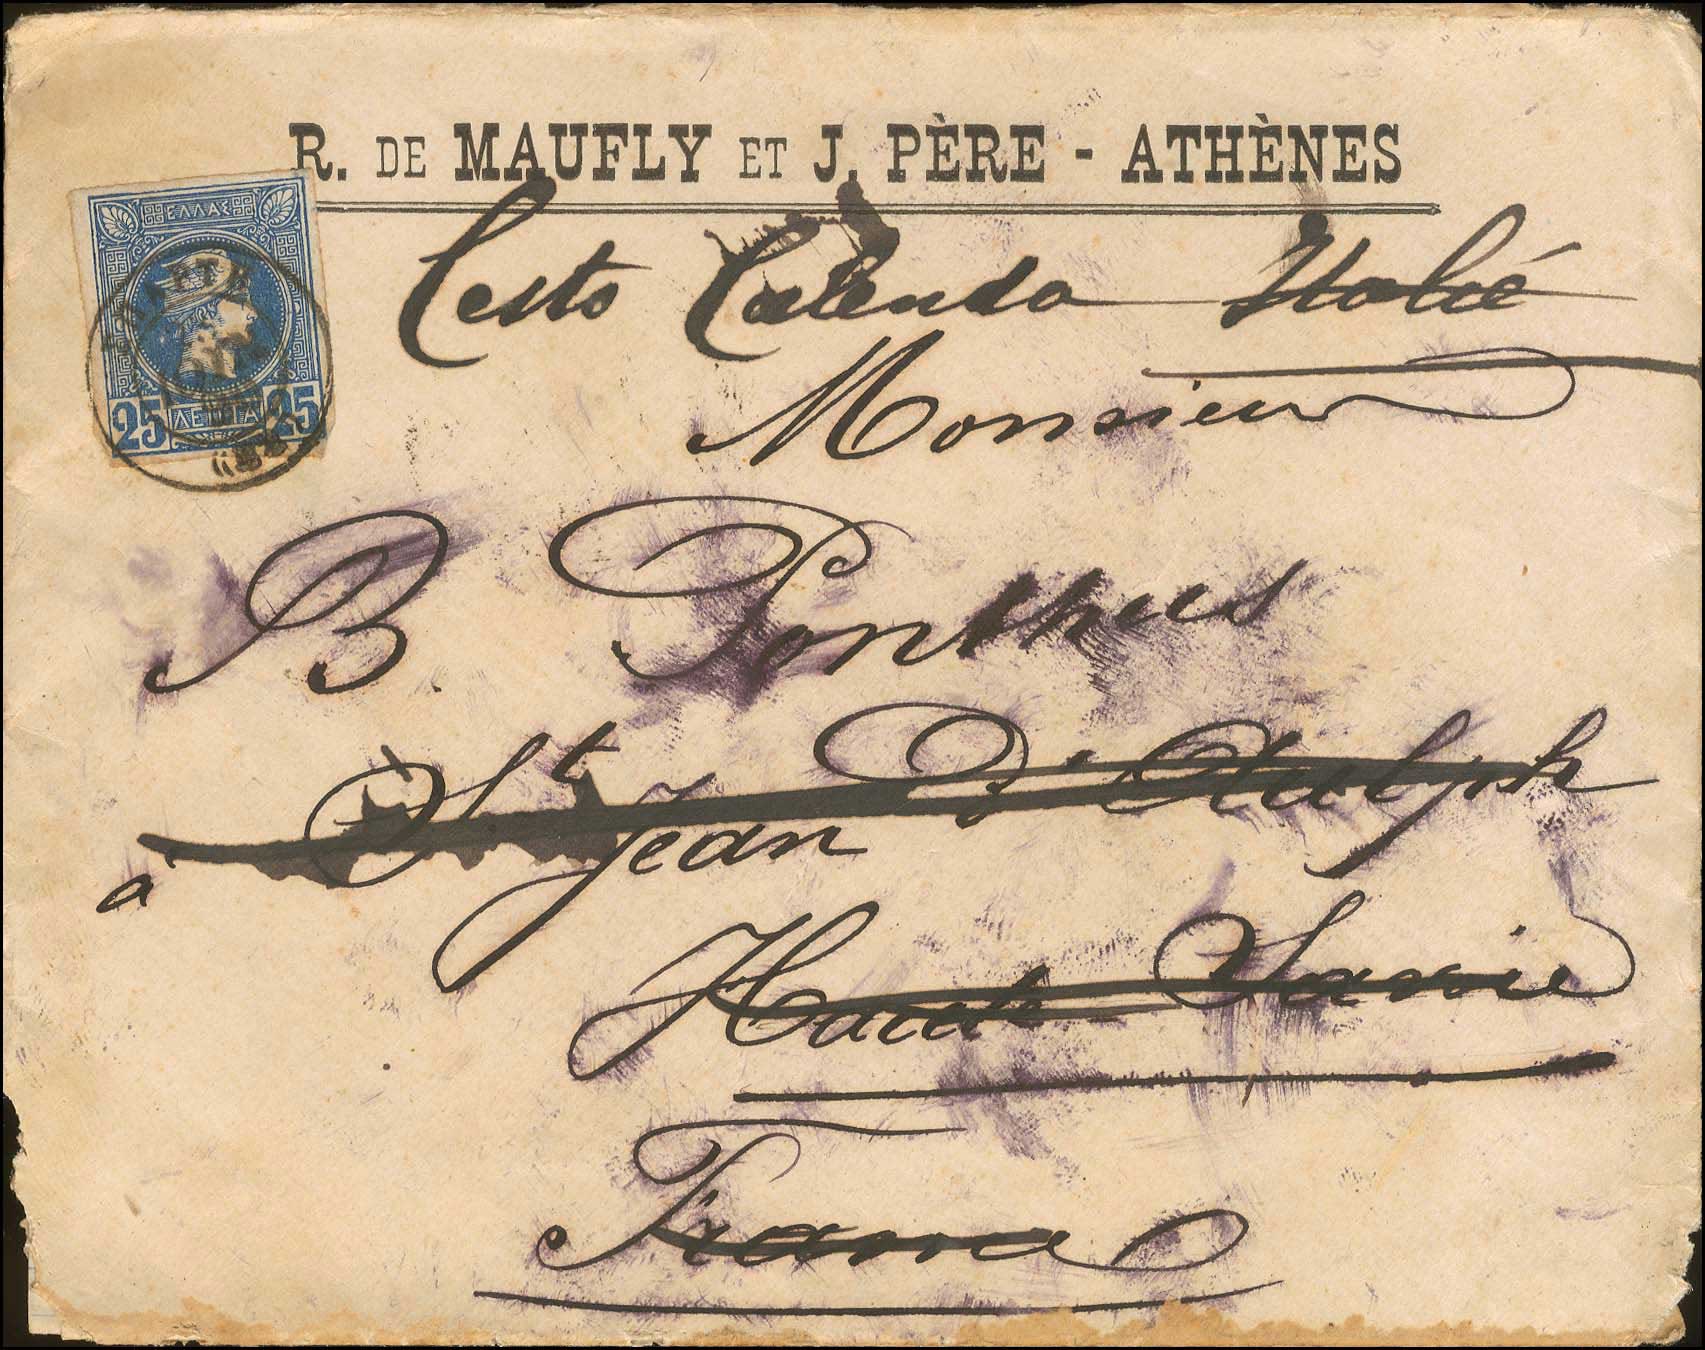 R. DE MAUFLY ET J. PÈRE - ATHÈNES
ΕΛΛΑΣ
25 ΛΕΠΤΑ 25
Cesto Calenda Italie
Monsieur
B. Ponthus
à St Jean D'Aulph
Haute Savoie
France